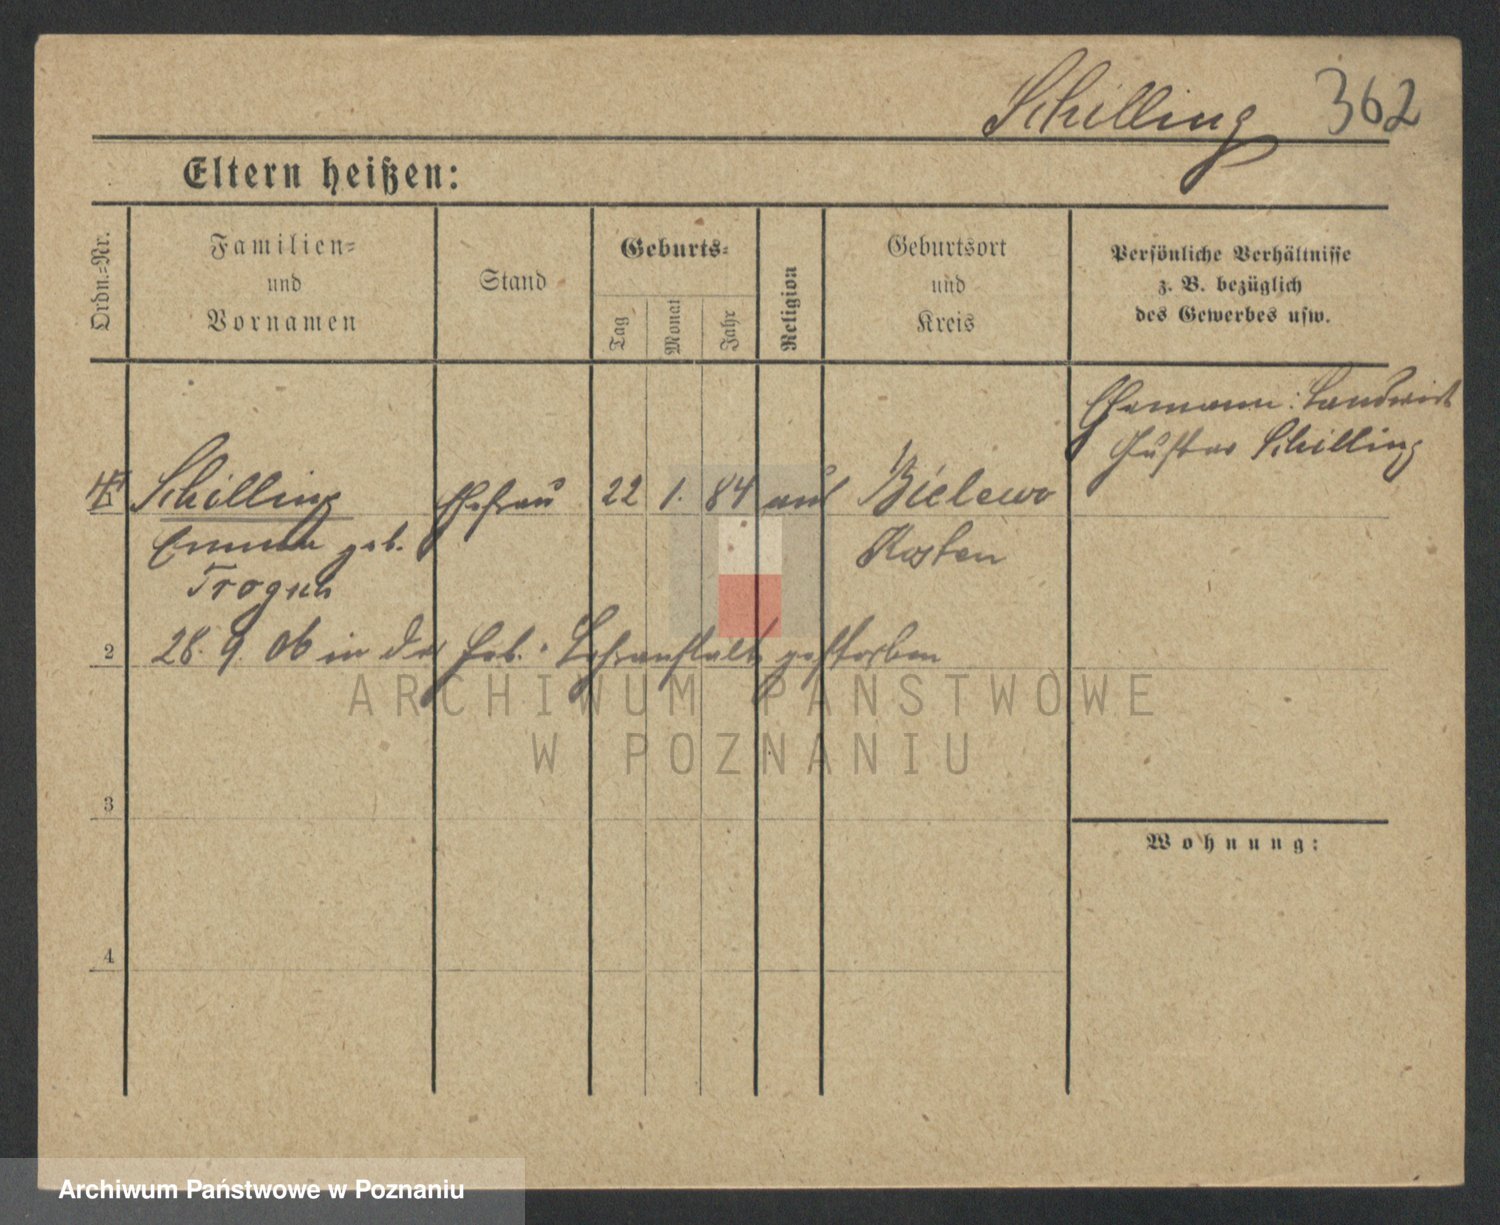 Schilling 362
Eltern heißen:
Ordn.=Nr.
Familien=
und
Vornamen
Stand
Geburts=
Tag
Monat
Jahr
Religion
Geburtsort
und
Kreis
Persönliche Verhältnisse
z. B. bezüglich
des Gewerbes usw.
Ehemann: Landwirt
Gustav Schilling
Schilling Ehefrau 22 1. 84 Bielewo
Emma geb. Kosten
2 28. 9. 06 in der Heb. Lehranstalt gestorben
3
Wohnung:
4
ARCHIWUM PAŃSTWOWE
W POZNANIU
Archiwum Państwowe w Poznaniu